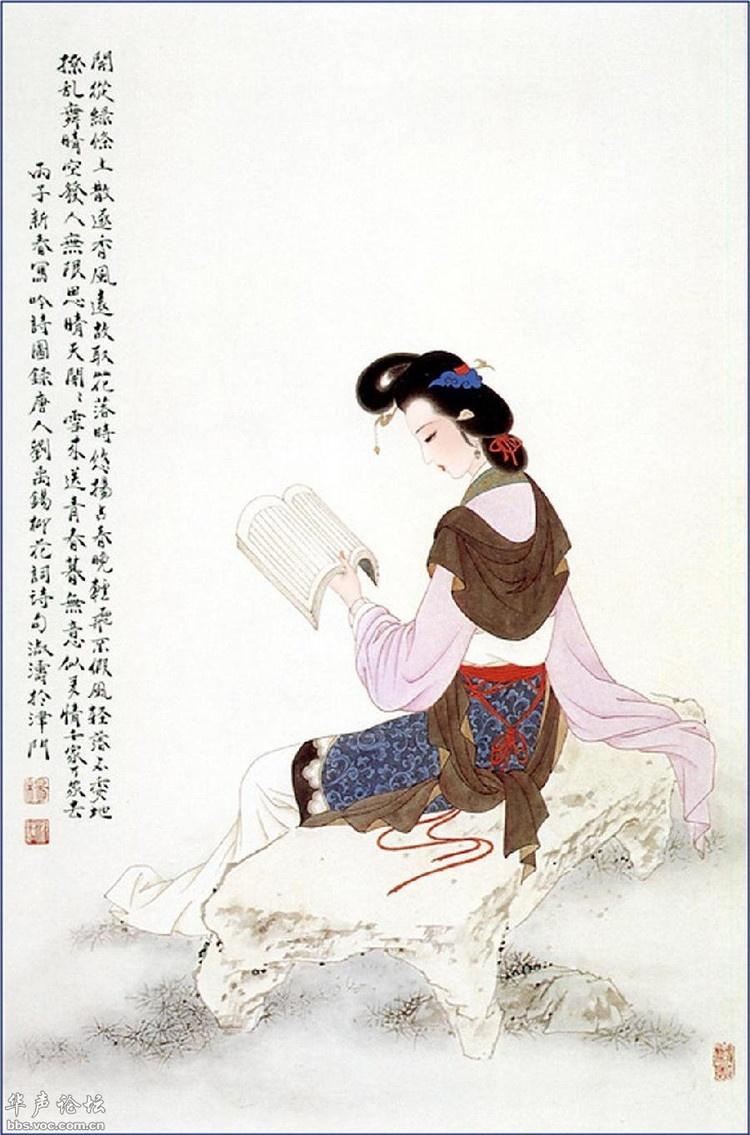 開從綠條上散逐香風遠故取花落時悠揚占春晚輕飛不假風輕落不委地
撩乱舞晴空發人無限思晴天闇〻雪来送青春暮無意似多情千家万家去
丙子新春寫吟詩圖錄唐人劉禹錫柳花詞诗句淑濤於津門
华声论坛
bbs.voc.com.cn